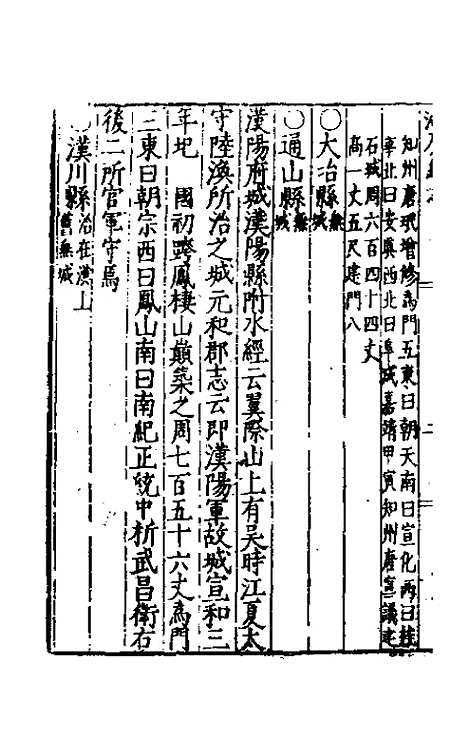 知州唐珉增修為門五東曰朝天南曰宣化西曰
寧北曰安真西北曰阜城嘉靖甲寅知州唐宣議建
石城周六百四十四丈
高一丈五尺建門八
〇大冶縣無城
〇通山縣無城
漢陽府城漢陽縣附水經云翼際山上有吳時江夏太
守陸渙所治之城元和郡志云即漢陽軍故城宣和三
年圯 國初跨鳳棲山巔築之周七百五十六丈為門
三東曰朝宗西曰鳳山南曰南紀正統中析武昌衛右
後二所官軍守焉
漢川縣治在漢上舊無城